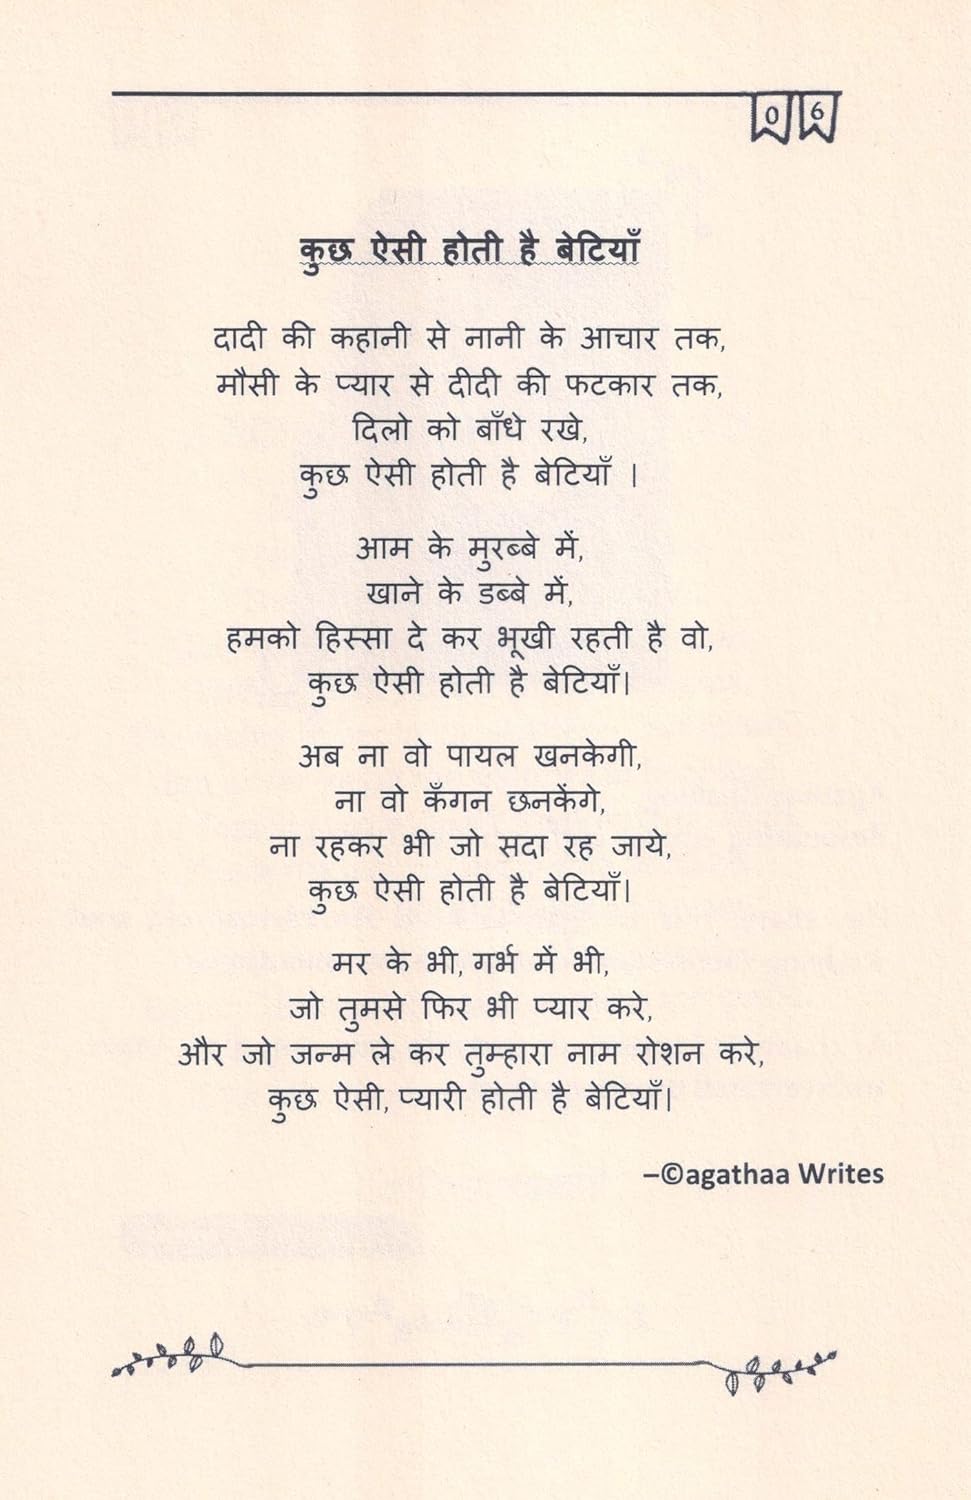 06
कुछ ऐसी होती है बेटियाँ
दादी की कहानी से नानी के आचार तक,
मौसी के प्यार से दीदी की फटकार तक,
दिलो को बाँधे रखे,
कुछ ऐसी होती है बेटियाँ ।
आम के मुरब्बे में,
खाने के डब्बे में,
हमको हिस्सा दे कर भूखी रहती है वो,
कुछ ऐसी होती है बेटियाँ।
अब ना वो पायल खनकेगी,
ना वो कँगन छनकेंगे,
ना रहकर भी जो सदा रह जाये,
कुछ ऐसी होती है बेटियाँ।
मर के भी, गर्भ में भी,
जो तुमसे फिर भी प्यार करे,
और जो जन्म ले कर तुम्हारा नाम रोशन करे,
कुछ ऐसी, प्यारी होती है बेटियाँ।
–©agathaa Writes